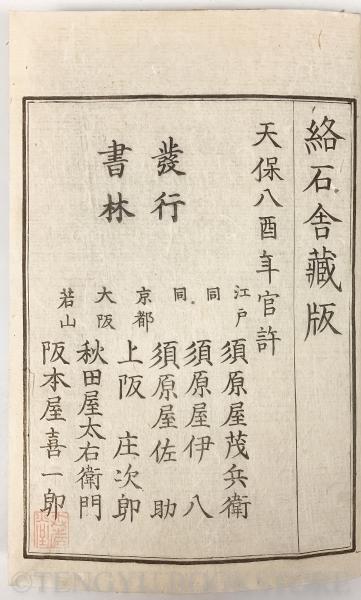 絡石舎藏版
天保八酉年官許
發行
書林
江戸 須原屋茂兵衛
同 須原屋伊八
同 須原屋佐助
京都 上阪庄次郎
大阪 秋田屋太右衛門
若山 阪本屋喜一郎
©TENGYU BOOKSTORE